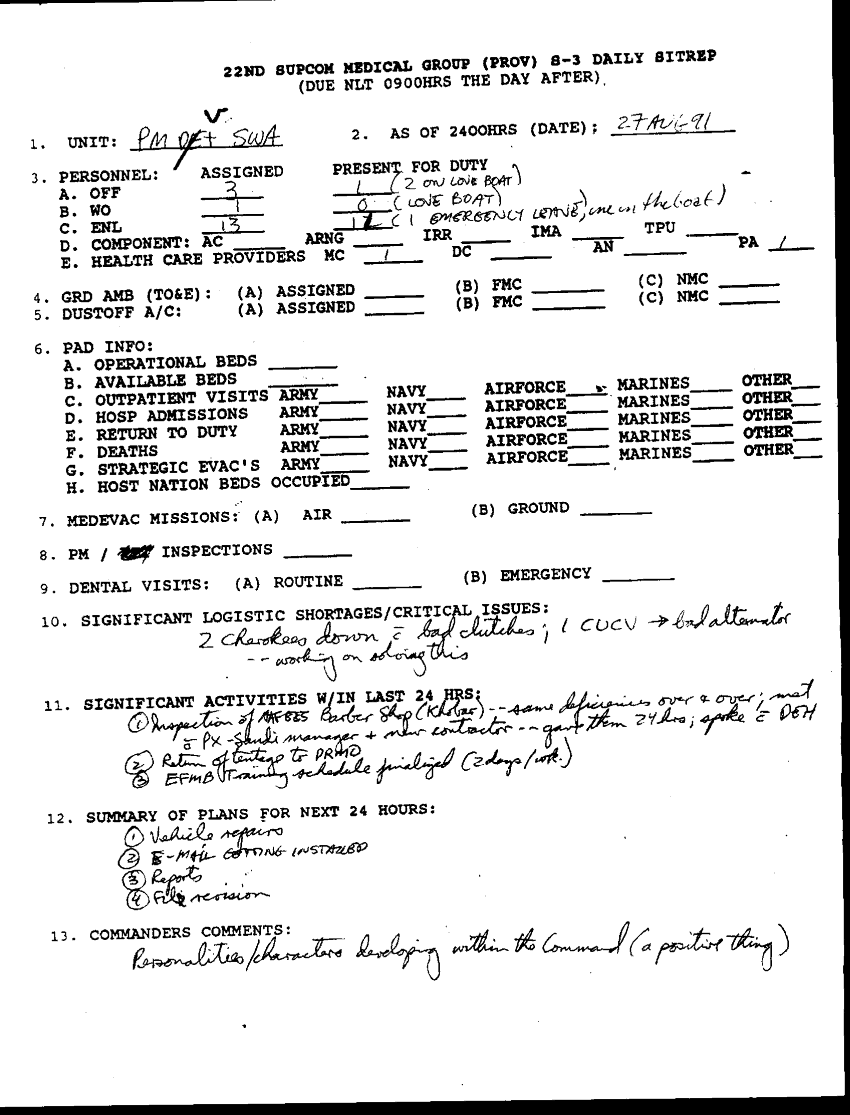 22ND SUPCOM MEDICAL GROUP (PROV) S-3 DAILY SITREP
(DUE NLT 0900HRS THE DAY AFTER)
1. UNIT: PM Det SWA 2. AS OF 2400HRS (DATE); 27 AUG 91
3. PERSONNEL: ASSIGNED PRESENT FOR DUTY
A. OFF 3 1 (2 ON LOVE BOAT)
B. WO 1 0 (LOVE BOAT)
C. ENL 13 (1 EMERGENCY LEAVE, one on the boat)
D. COMPONENT: AC ARNG IRR IMA TPU
E. HEALTH CARE PROVIDERS MC 1 DC AN PA 1
4. GRD AMB (TO&E): (A) ASSIGNED (B) FMC (C) NMC
5. DUSTOFF A/C: (A) ASSIGNED (B) FMC (C) NMC
6. PAD INFO:
A. OPERATIONAL BEDS
B. AVAILABLE BEDS
C. OUTPATIENT VISITS ARMY NAVY AIRFORCE MARINES OTHER
D. HOSP ADMISSIONS ARMY NAVY AIRFORCE MARINES OTHER
E. RETURN TO DUTY ARMY NAVY AIRFORCE MARINES OTHER
F. DEATHS ARMY NAVY AIRFORCE MARINES OTHER
G. STRATEGIC EVAC'S ARMY NAVY AIRFORCE MARINES OTHER
H. HOST NATION BEDS OCCUPIED
7. MEDEVAC MISSIONS: (A) AIR (B) GROUND
8. PM / INSPECTIONS
9. DENTAL VISITS: (A) ROUTINE (B) EMERGENCY
10. SIGNIFICANT LOGISTIC SHORTAGES/CRITICAL ISSUES:
2 Cherokees down c̄ bad clutches; 1 CUCV → bad alternator
-- working on solving this
11. SIGNIFICANT ACTIVITIES W/IN LAST 24 HRS:
① Inspection of AAFES Barber Shop (Khobar) -- same deficiencies over & over; met
c̄ PX - Saudi manager + new contractor -- gave them 24 hrs; spoke c̄ DEH
② Return of tentage to PRMO
③ EFMB Training schedule finalized (2 days/wk.)
12. SUMMARY OF PLANS FOR NEXT 24 HOURS:
① Vehicle repairs
② E-MAIL GETTING INSTALLED
③ Reports
④ File revision
13. COMMANDERS COMMENTS:
Personalities/characters developing within the Command (a positive thing)